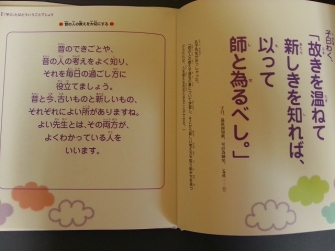 子曰わく、
「故きを温ねて
新しきを知れば、
以って
師と為るべし。」
昔の人の教えを大切にする
昔のできごとや、
昔の人の考えをよく知り、
それを毎日の過ごし方に
役立てましょう。
昔と今、古いものと新しいもの、
それぞれによい所がありますね。
よい先生とは、その両方が、
よくわかっている人を
いいます。